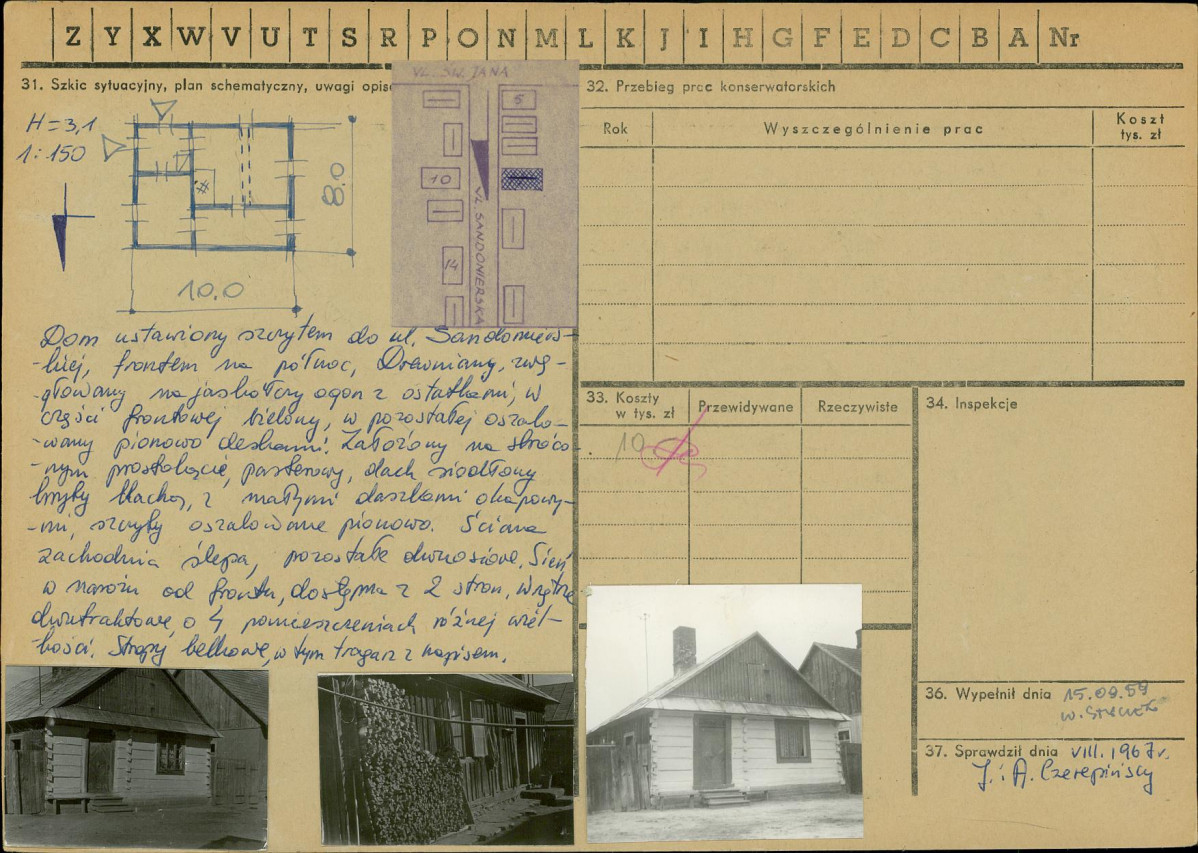 Z Y X W V U T S R P O N M L K J I H G F E D C B A Nr
31. Szkic sytuacyjny, plan schematyczny, uwagi opis
H = 3,1
1:150
8.0
10.0
UL. ŚW. JANA
6
10
14
UL. SANDOMIERSKA
Dom ustawiony szczytem do ul. Sandomiers-
-kiej, frontem na północ, Drewniany, zwę-
-głowany na jaskółczy ogon z ostatkami, w
części frontowej bielony, w pozostałej oszalo-
-wany pionowo deskami. Założony na skróco-
-nym prostokącie, parterowy, dach siodłowy
kryty blachą, z małymi daszkami okapowy-
-mi, szczyty oszalowane pionowo. Ściana
zachodnia ślepa, pozostałe dwuosiowe. Sień
w narożu od frontu, dostępna z 2 stron, wnętrze
dwutraktowe, o 4 pomieszczeniach różnej wiel-
-kości. Stropy belkowe, w tym tragarz z napisem.
32. Przebieg prac konserwatorskich
Rok
Wyszczególnienie prac
Koszt
tys. zł
33. Koszty
w tys. zł
Przewidywane
Rzeczywiste
10
34. Inspekcje
36. Wypełnił dnia 15.09.59
37. Sprawdził dnia VIII. 1967 r.
J. i A. Czerepińscy